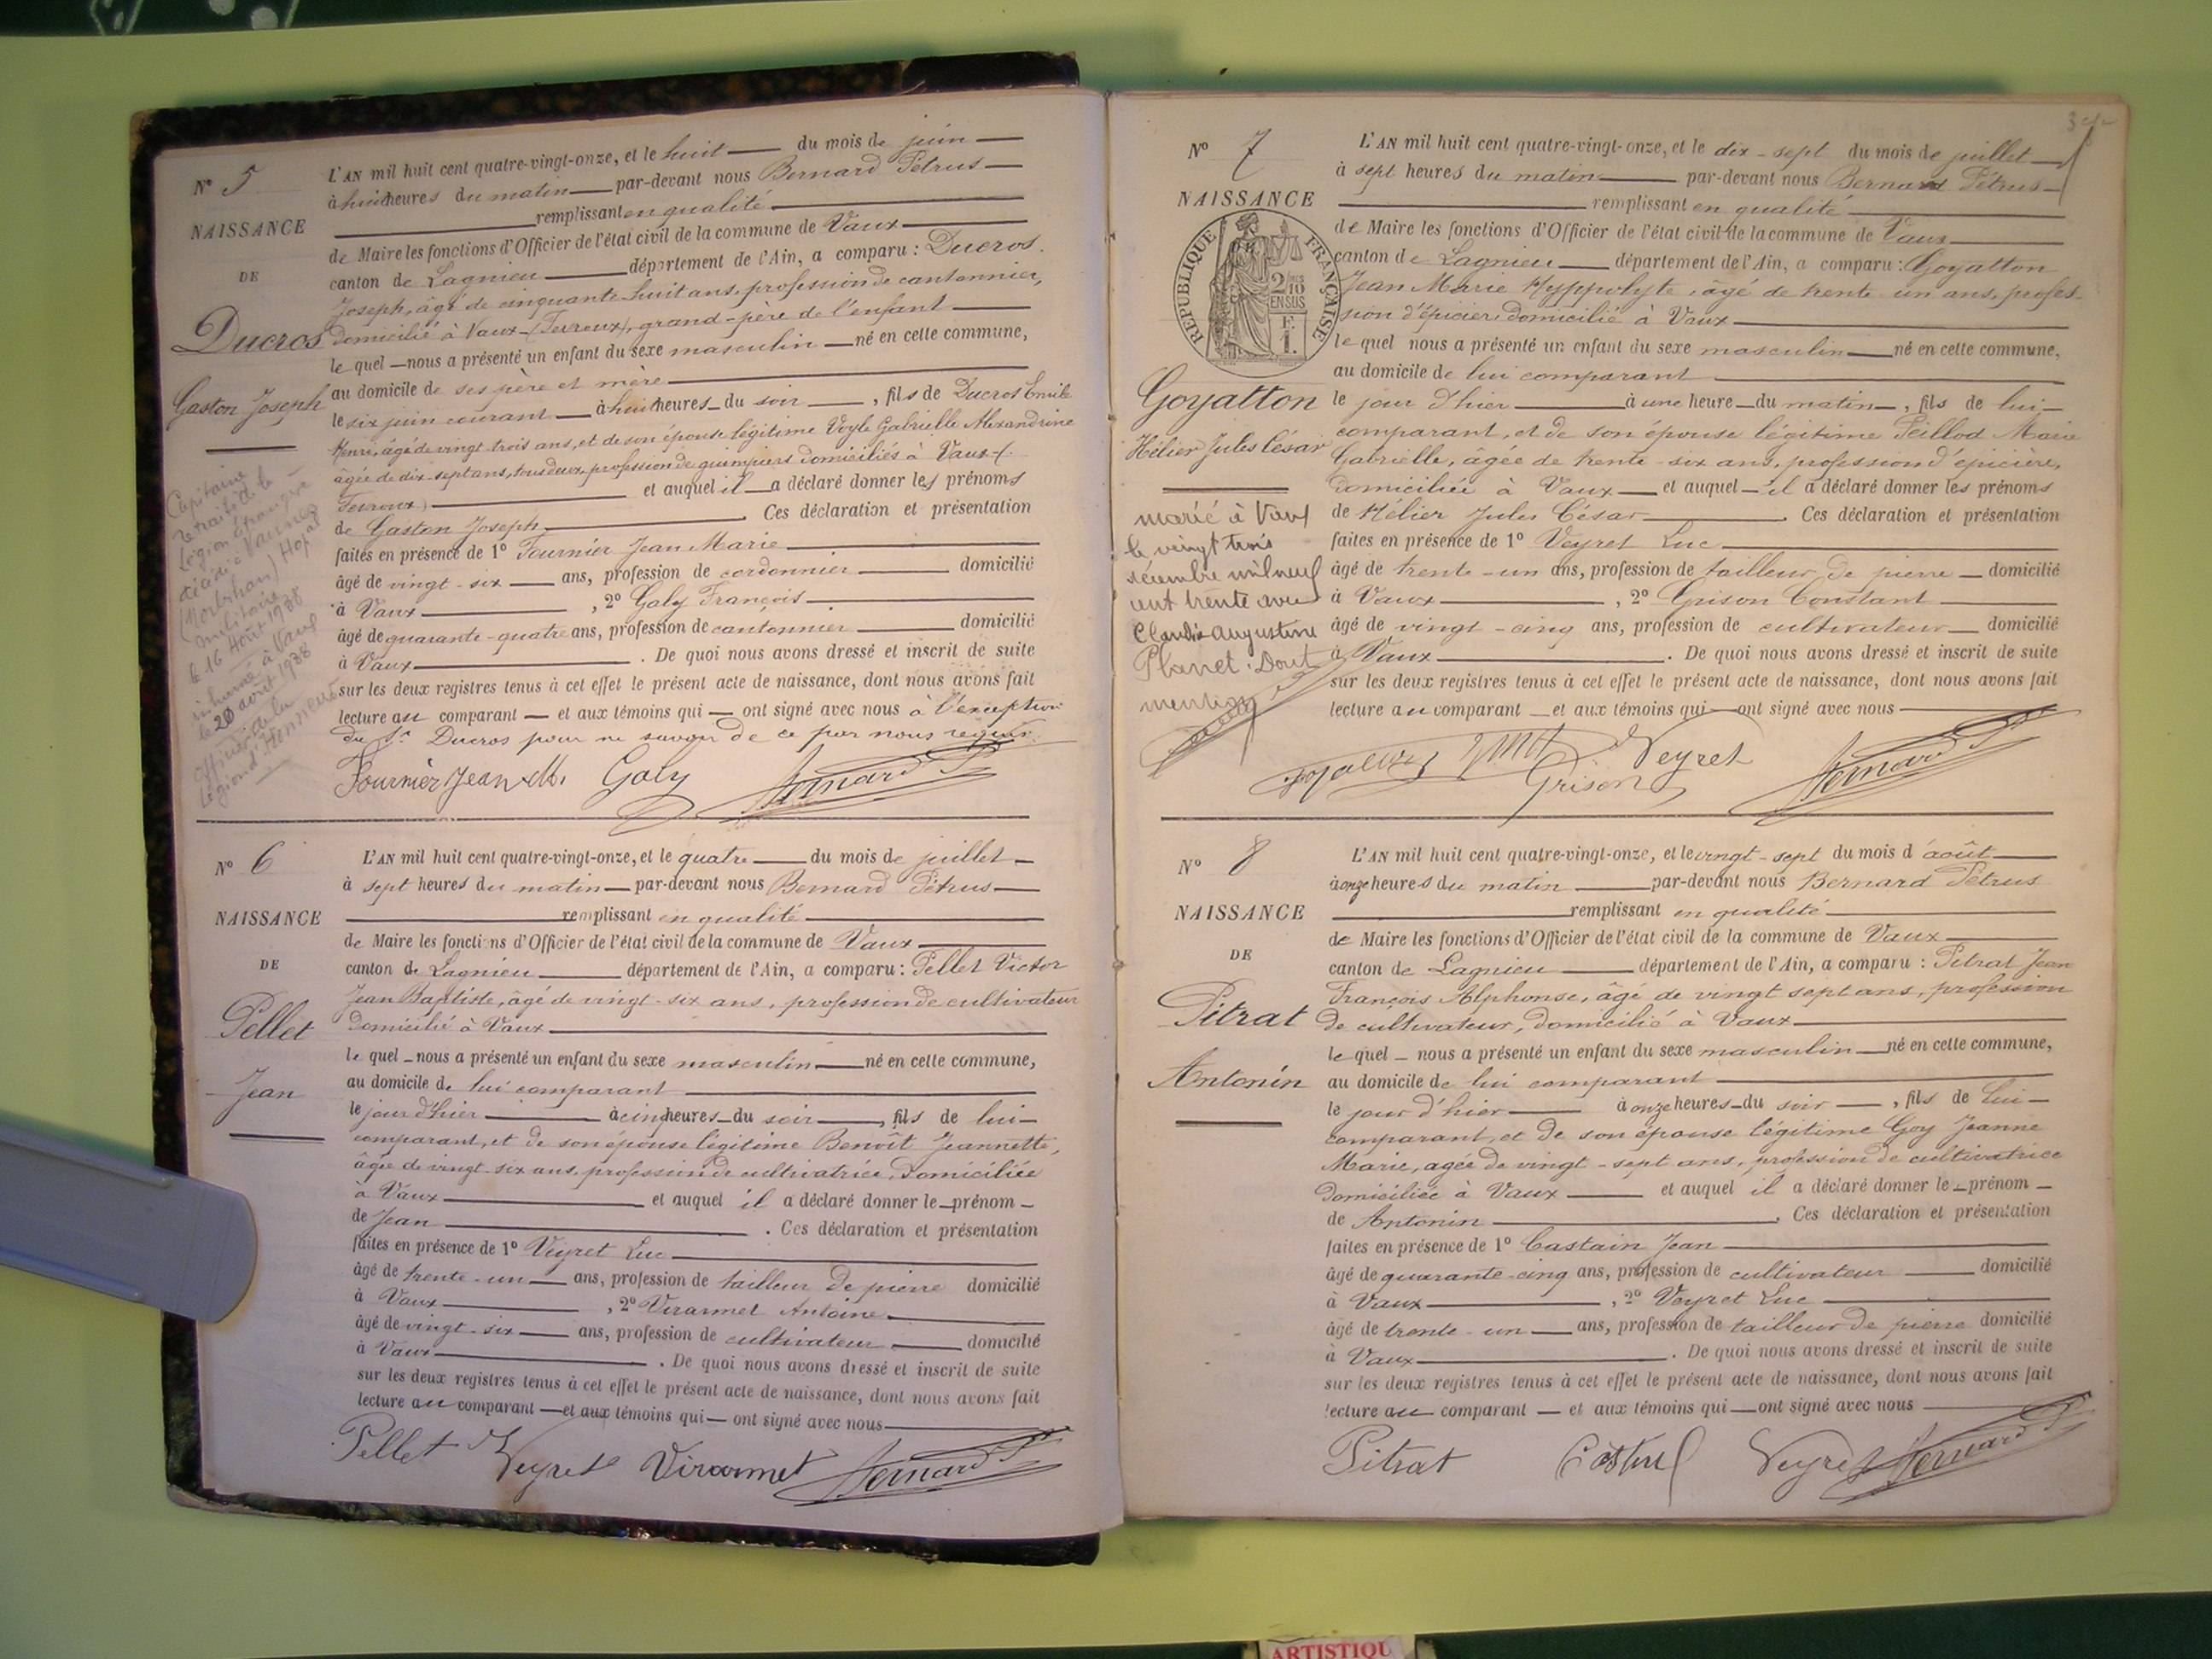 N° 5
NAISSANCE
DE
Ducros
Gaston Joseph
Capitaine
retraité de la
Légion étrangère
décédé à Vannes
(Morbihan) Hopital
militaire
le 16 Août 1938
inhumé à Vaux
le 20 août 1938
officier de la
Légion d'Honneur
L'AN mil huit cent quatre-vingt-onze, et le huit du mois de juin
à huit heures du matin par-devant nous Bernard Pétrus
remplissant en qualité
de Maire les fonctions d'Officier de l'état civil de la commune de Vaux
canton de Lagnieu département de l'Ain, a comparu : Ducros
Joseph, âgé de cinquante-huit ans, profession de cantonnier,
domicilié à Vaux (Févroux), grand-père de l'enfant
le quel nous a présenté un enfant du sexe masculin né en cette commune,
au domicile de ses père et mère
le six juin courant à huit heures du soir, fils de Ducros Emile
Henri, âgé de vingt trois ans, et de son épouse légitime Voyle Gabrielle Alexandrine
âgée de dix-sept ans, tous deux, profession de guimpiers domiciliés à Vaux (
Févroux) et auquel il a déclaré donner les prénoms
de Gaston Joseph. Ces déclaration et présentation
faites en présence de 1° Fournier Jean Marie
âgé de vingt-six ans, profession de cordonnier domicilié
à Vaux, 2° Galy François
âgé de quarante-quatre ans, profession de cantonnier domicilié
à Vaux. De quoi nous avons dressé et inscrit de suite
sur les deux registres tenus à cet effet le présent acte de naissance, dont nous avons fait
lecture au comparant et aux témoins qui ont signé avec nous à l'exception
du Sr Ducros pour ne savoir de ce par nous requis.
Fournier Jean M. Galy Bernard P.
N° 6
NAISSANCE
DE
Pellet
Jean
L'AN mil huit cent quatre-vingt-onze, et le quatre du mois de juillet
à sept heures du matin par-devant nous Bernard Pétrus
remplissant en qualité
de Maire les fonctions d'Officier de l'état civil de la commune de Vaux
canton de Lagnieu département de l'Ain, a comparu : Pellet Victor
Jean Baptiste, âgé de vingt-six ans, profession de cultivateur
domicilié à Vaux
le quel nous a présenté un enfant du sexe masculin né en cette commune,
au domicile de lui comparant
le jour d'hier à cinq heures du soir, fils de lui
comparant, et de son épouse légitime Benoît Jeannette,
âgée de vingt-six ans, profession de cultivatrice, domiciliée
à Vaux et auquel il a déclaré donner le prénom
de Jean. Ces déclaration et présentation
faites en présence de 1° Veyret Luc
âgé de trente-un ans, profession de tailleur de pierre domicilié
à Vaux, 2° Virarmet Antoine
âgé de vingt-six ans, profession de cultivateur domicilié
à Vaux. De quoi nous avons dressé et inscrit de suite
sur les deux registres tenus à cet effet le présent acte de naissance, dont nous avons fait
lecture au comparant et aux témoins qui ont signé avec nous
Pellet Veyret Virarmet Bernard P.
N° 7
NAISSANCE
RÉPUBLIQUE FRANÇAISE
2/10
EN SUS
F.
1.
Goyatton
Hélier Jules César
marié à Vaux
le vingt trois
décembre mil neuf
cent trente avec
Claudia Augustine
Planet. Dont
mention
L'AN mil huit cent quatre-vingt-onze, et le dix-sept du mois de juillet
à sept heures du matin par-devant nous Bernard Pétrus
remplissant en qualité
de Maire les fonctions d'Officier de l'état civil de la commune de Vaux
canton de Lagnieu département de l'Ain, a comparu : Goyatton
Jean Marie Hyppolyte, âgé de trente-un ans, profes-
sion d'épicier, domicilié à Vaux
le quel nous a présenté un enfant du sexe masculin né en cette commune,
au domicile de lui comparant
le jour d'hier à une heure du matin, fils de lui
comparant, et de son épouse légitime Peillod Marie
Gabrielle, âgée de trente-six ans, profession d'épicière,
domiciliée à Vaux et auquel il a déclaré donner les prénoms
de Hélier Jules César. Ces déclaration et présentation
faites en présence de 1° Veyret Luc
âgé de trente-un ans, profession de tailleur de pierre domicilié
à Vaux, 2° Grison Constant
âgé de vingt-cinq ans, profession de cultivateur domicilié
à Vaux. De quoi nous avons dressé et inscrit de suite
sur les deux registres tenus à cet effet le présent acte de naissance, dont nous avons fait
lecture au comparant et aux témoins qui ont signé avec nous
Veyret
Grison Bernard P.
N° 8
NAISSANCE
DE
Pitrat
Antonin
L'AN mil huit cent quatre-vingt-onze, et le vingt-sept du mois d'août
à onze heures du matin par-devant nous Bernard Pétrus
remplissant en qualité
de Maire les fonctions d'Officier de l'état civil de la commune de Vaux
canton de Lagnieu département de l'Ain, a comparu : Pitrat Jean
François Alphonse, âgé de vingt sept ans, profession
de cultivateur, domicilié à Vaux
le quel nous a présenté un enfant du sexe masculin né en cette commune,
au domicile de lui comparant
le jour d'hier à onze heures du soir, fils de lui
comparant, et de son épouse légitime Goy Jeanne
Marie, agée de vingt-sept ans, profession de cultivatrice
domiciliée à Vaux et auquel il a déclaré donner le prénom
de Antonin. Ces déclaration et présentation
faites en présence de 1° Castain Jean
âgé de quarante-cinq ans, profession de cultivateur domicilié
à Vaux, 2° Veyret Luc
âgé de trente-un ans, profession de tailleur de pierre domicilié
à Vaux. De quoi nous avons dressé et inscrit de suite
sur les deux registres tenus à cet effet le présent acte de naissance, dont nous avons fait
lecture au comparant et aux témoins qui ont signé avec nous
Pitrat Veyret Bernard P.
ARTISTIQU